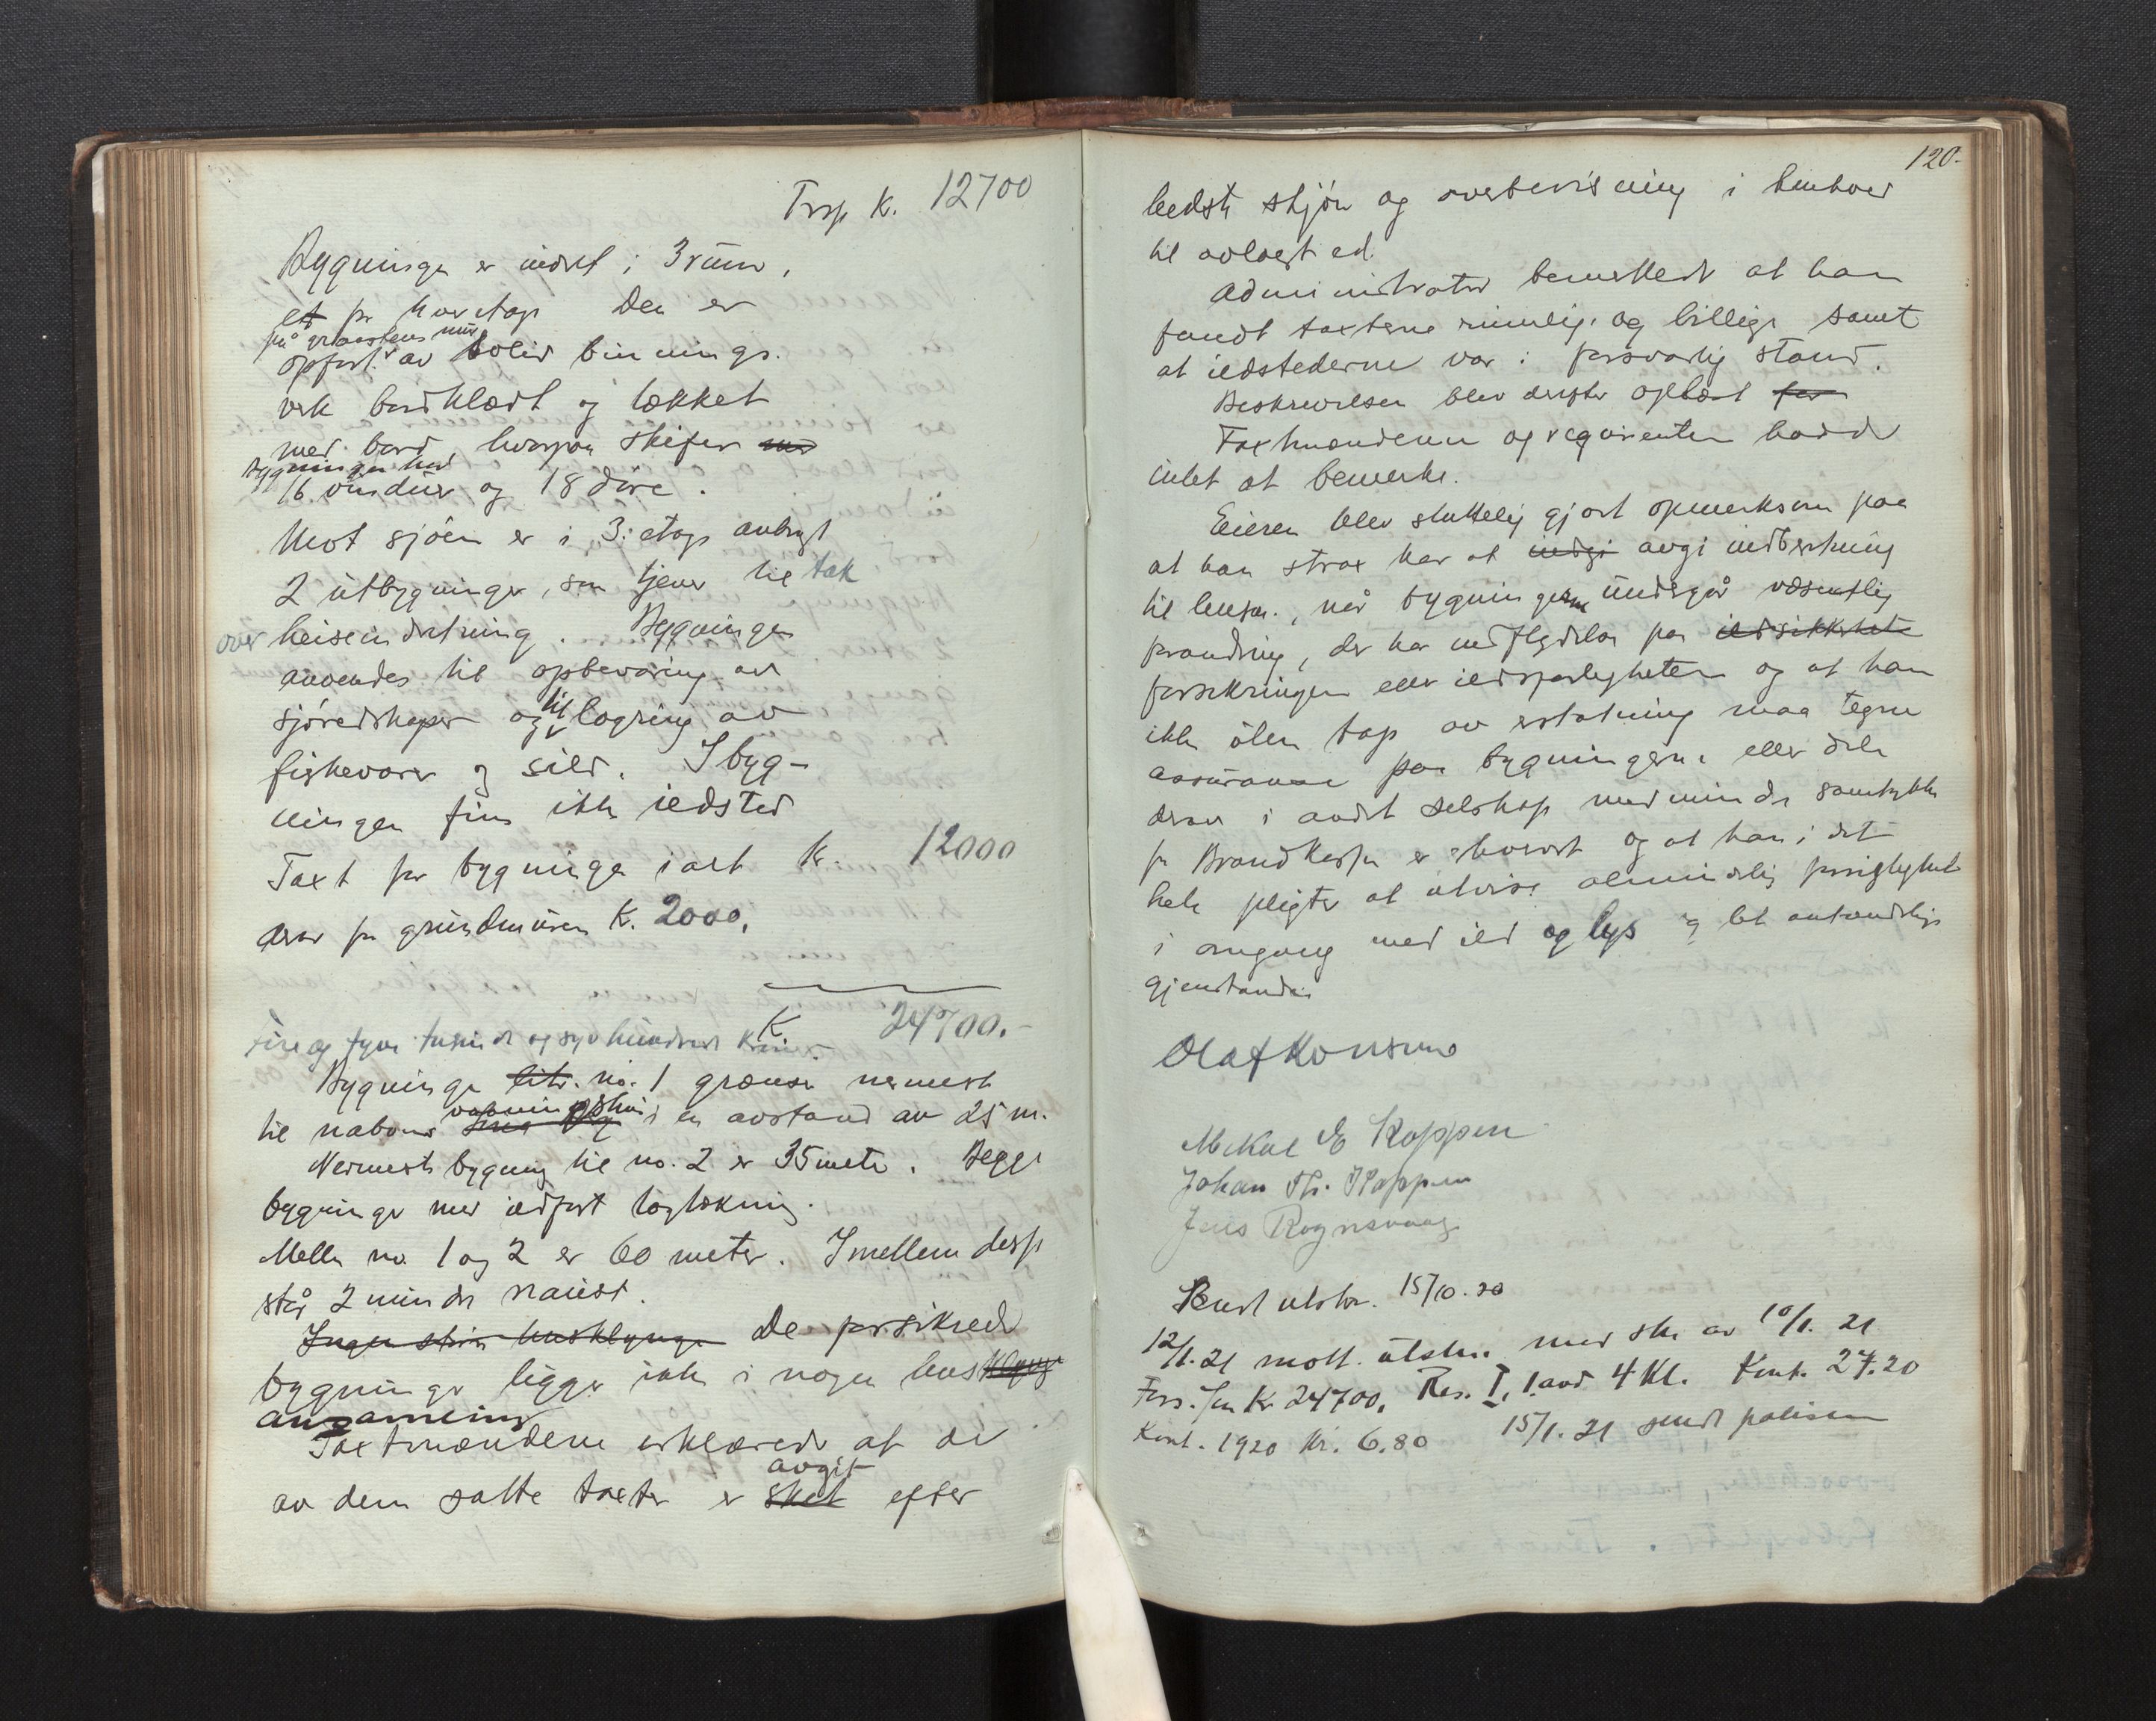 Trsp k. 12700
Bygningen er indret i 3 rum,
et pr hver etage Den er
på graastens mur
opført av solid bindnings-
verk bordklædt og tækket
med bord, hvorpaa skifer
Bygningen har
16 vinduer og 18 döre.
Mot sjöen er i 3. etage anbragt
2 utbygninger, som tjener til tak
over heiseindretning. Bygningen
anvendes til opbevaring av
sjøredskaper og til lagring av
fiskevarer og sild. I byg-
ningen fins ikke ildsted
Taxt for bygningen ialt k. 12000
derav for grundmuren k. 2000,
K 24700.-
Fire og tyve tusinde og syv hundrede kroner.
Bygningen litr. no. 1 grænser nermest
til nabons vaaningshus i en avstand av 25 m.
Nermeste bygning til no. 2 er 35 meter. Begge
bygninger med ildfast tagtækning.
Mellem no. 1 og 2 er 60 meter. Imellem disse
står 2 mindre naust.
Ingen större husklynge De forsikrede
bygninger ligger ikke i nogen husklynge
ansamling
Taxtmændene erklærede at de
avgit
av dem satte taxter er sket efter
120-
bedste skjön og overbevisning i henhold
til avlagt ed.
Administrator bemerkede at han
fandt taxterne rimelige og billige samt
at ildstederne var i forsvarlig stand.
Beskrivelsen blev derefter oplæst for
Taxtmændene og reqvirenten hadde
intet at bemerke.
Eieren blev sluttelig gjort opmerksom paa
at han strax har at indgi avgi indberetning
til lensm., når bygningerne undergår væsentlig
forandring, der har indflydelse paa ildsikkerheten
forsikringen eller ildsfarligheten og at han
ikke uten tap av erstatning maa tegne
assurance paa bygningerne eller dele
derav i andet selskap medmindre samtykke
fra Brandkassen er erhvervet og at han i det
hele pligter at utvise almindelig forsigtighet
i omgang med ild og lys og let antændelige
gjenstande.
Olaf Konsmo
Mikal E Koppen
Johan Th. Koppen
Jens Rognsvaag
Sendt utskr. 15/10.20
12/1.21 mott. utskr. med skr av 10/1.21
Fors. for kr 24700, Res. I, 1.avd 4 Kl. Kont. 27.20
Kont. 1920 kr. 6.80 15/1.21 sendt polisen